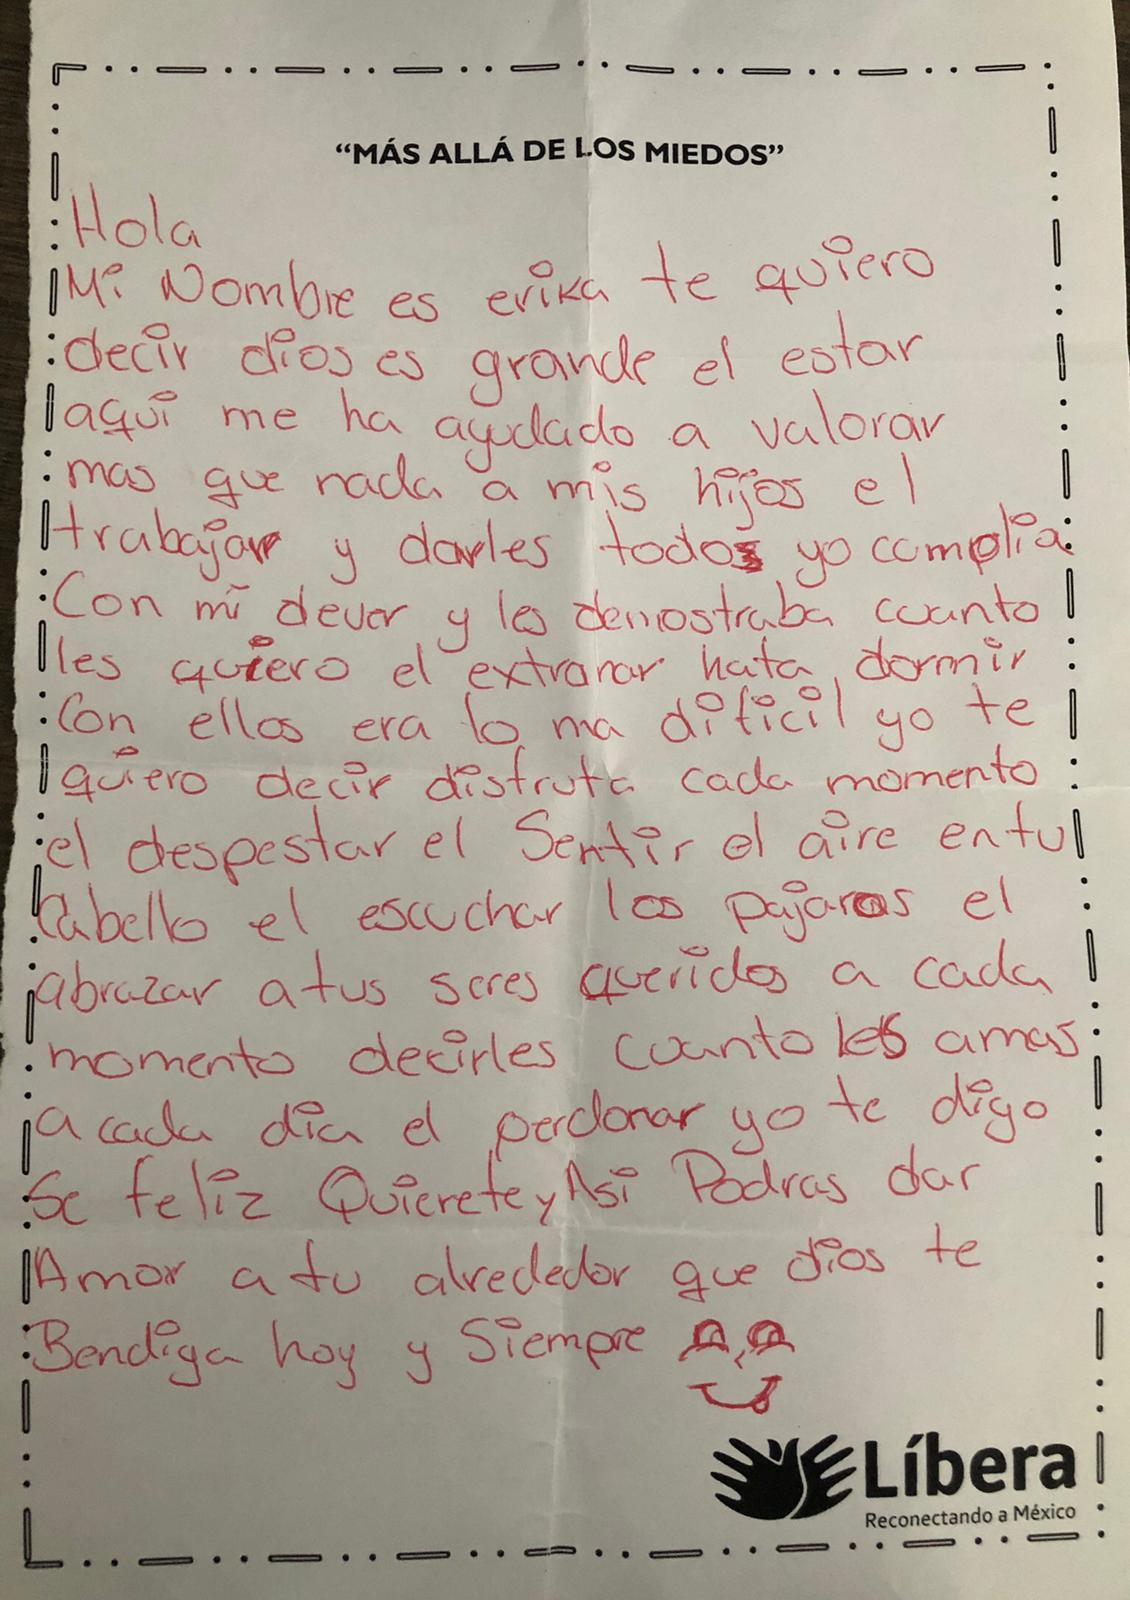 “MÁS ALLÁ DE LOS MIEDOS”
Hola
Mi Nombre es erika te quiero
decir dios es grande el estar
aqui me ha ayudado a valorar
mas que nada a mis hijos el
trabajar y darles todos yo complia
Con mi dever y les demostraba cuanto
les quiero el extranar hata dormir
Con ellos era lo ma dificil yo te
quiero decir disfruta cada momento
el despestar el Sentir el aire en tu
Cabello el escuchar los pajaros el
abrazar a tus seres queridos a cada
momento decirles cuanto les amas
a cada dia el perdonar yo te digo
Se feliz Quierete y Asi Podras dar
Amor a tu alrededor que dios te
Bendiga hoy y Siempre
Líbera
Reconectando a México